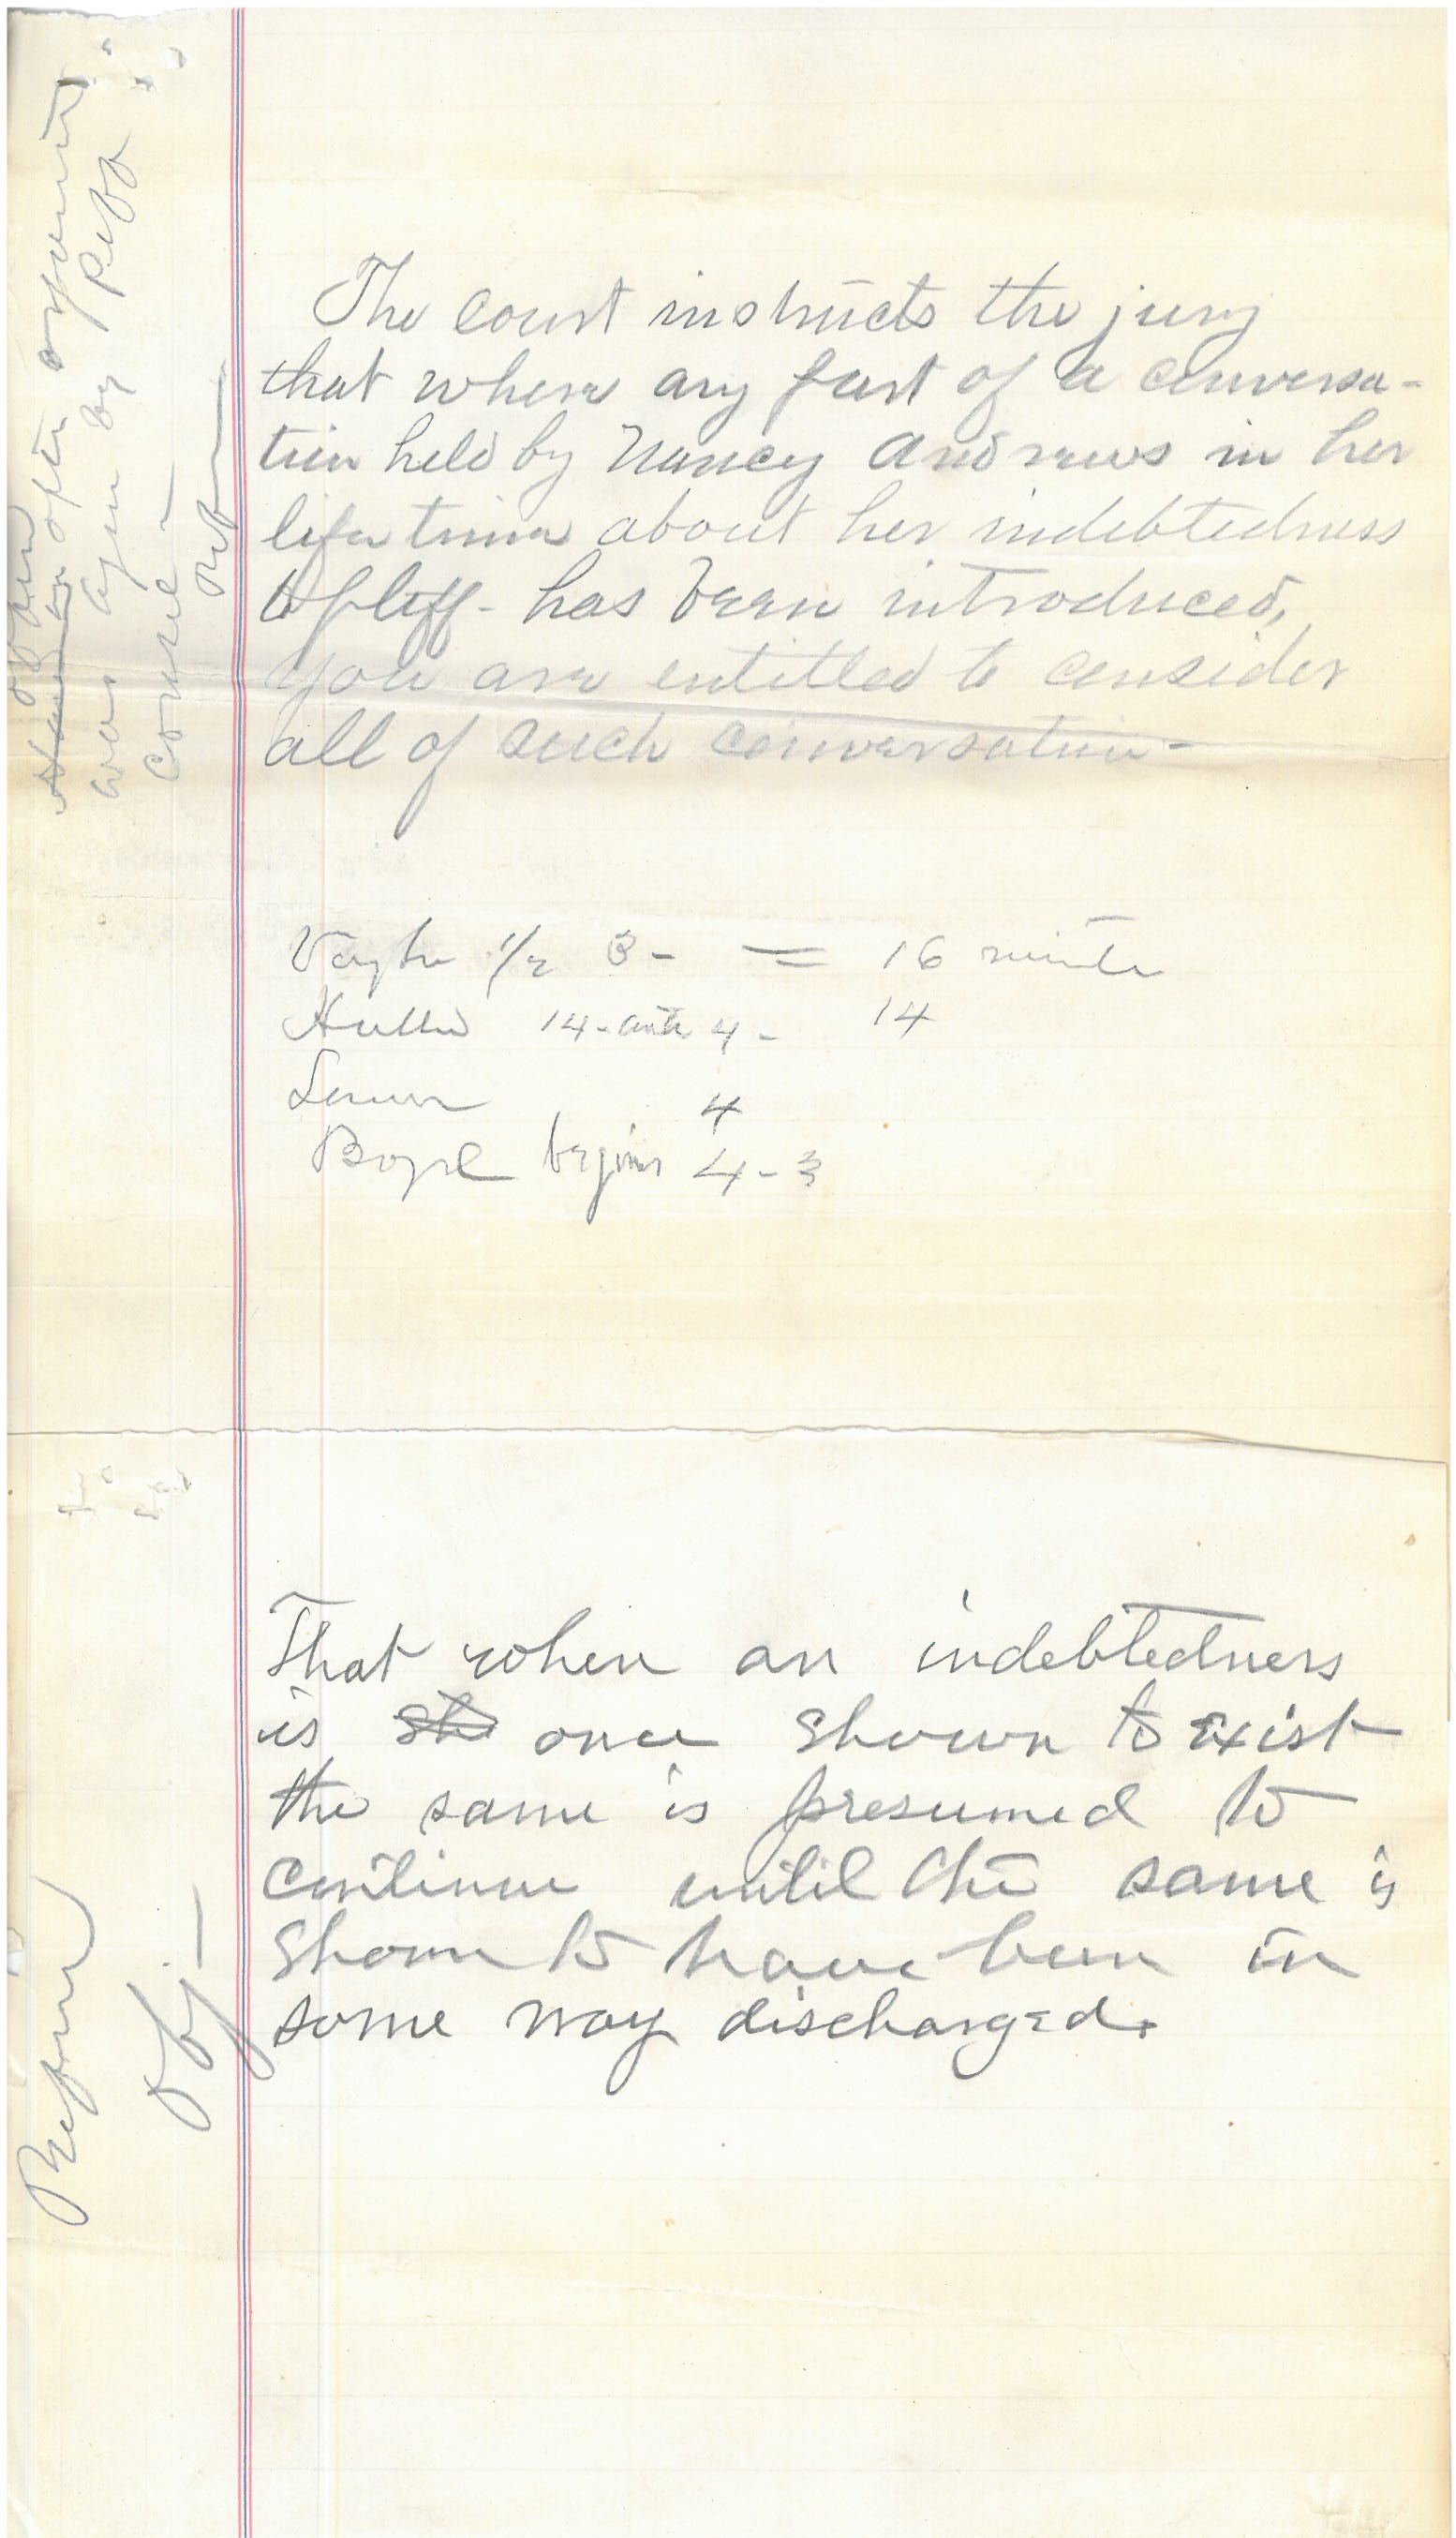 The court instructs the jury
that where any part of a conversa-
tion held by Nancy Andrews in her
life time about her indebtedness
to pltff - has been introduced,
you are entitled to consider
all of such conversation -
1/2 3 - = 16 minute
14 - 4 - 14
4
begins 4 - 3
That when an indebtedness
is once shown to exist
the same is presumed to
continue until the same is
shown to have been in
some way discharged.
was by Pltff
Counsel -
Refused
Obj -